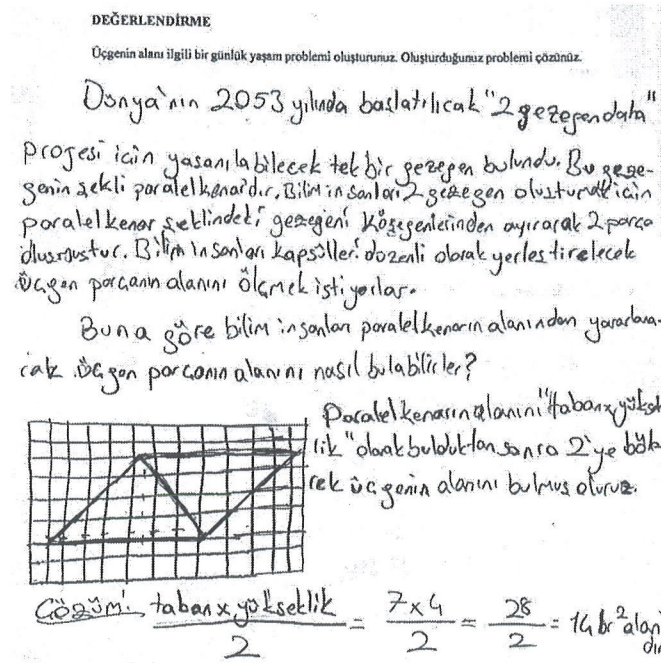 DEĞERLENDİRME
Üçgenin alanı ilgili bir günlük yaşam problemi oluşturunuz. Oluşturduğunuz problemi çözünüz.
Dünya'nın 2053 yılında başlatılıcak "2 gezegen daha"
projesi için yaşanılabilecek tek bir gezegen bulundu. Bu geze-
genin şekli paralelkenardır. Bilim insanları 2 gezegen oluşturmak için
paralelkenar şeklindeki gezegeni köşegenlerinden ayırarak 2 parça
oluşmuştur. Bilim insanları kapsülleri düzenli olarak yerleştirelecek
üçgen parçanın alanını ölçmek istiyorlar.
Buna göre bilim insanları paralelkenarın alanından yararlana-
rak üçgen parçanın alanını nasıl bulabilirler?
Paralelkenarın alanını "taban x yüksek
lik" olarak bulduktan sonra 2'ye böle
rek üçgenin alanını bulmuş oluruz.
Çözüm: taban x yükseklik / 2 = 7 x 4 / 2 = 28 / 2 = 14 br² alan
dır